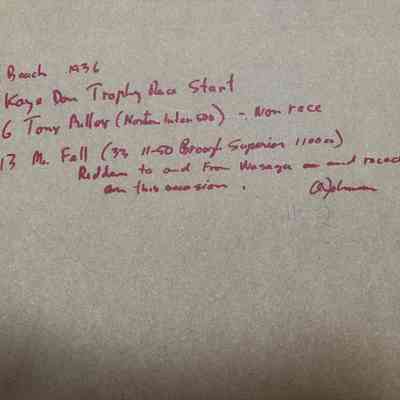 Beach 1936
Kaye Don Trophy Race Start
6 Tony Miller (Norton Inter 500) - Won race
13 Mr. Fell (33 11-50 Brough Superior 1100cc)
Ridden to and from Wasaga and raced
on this occasion.